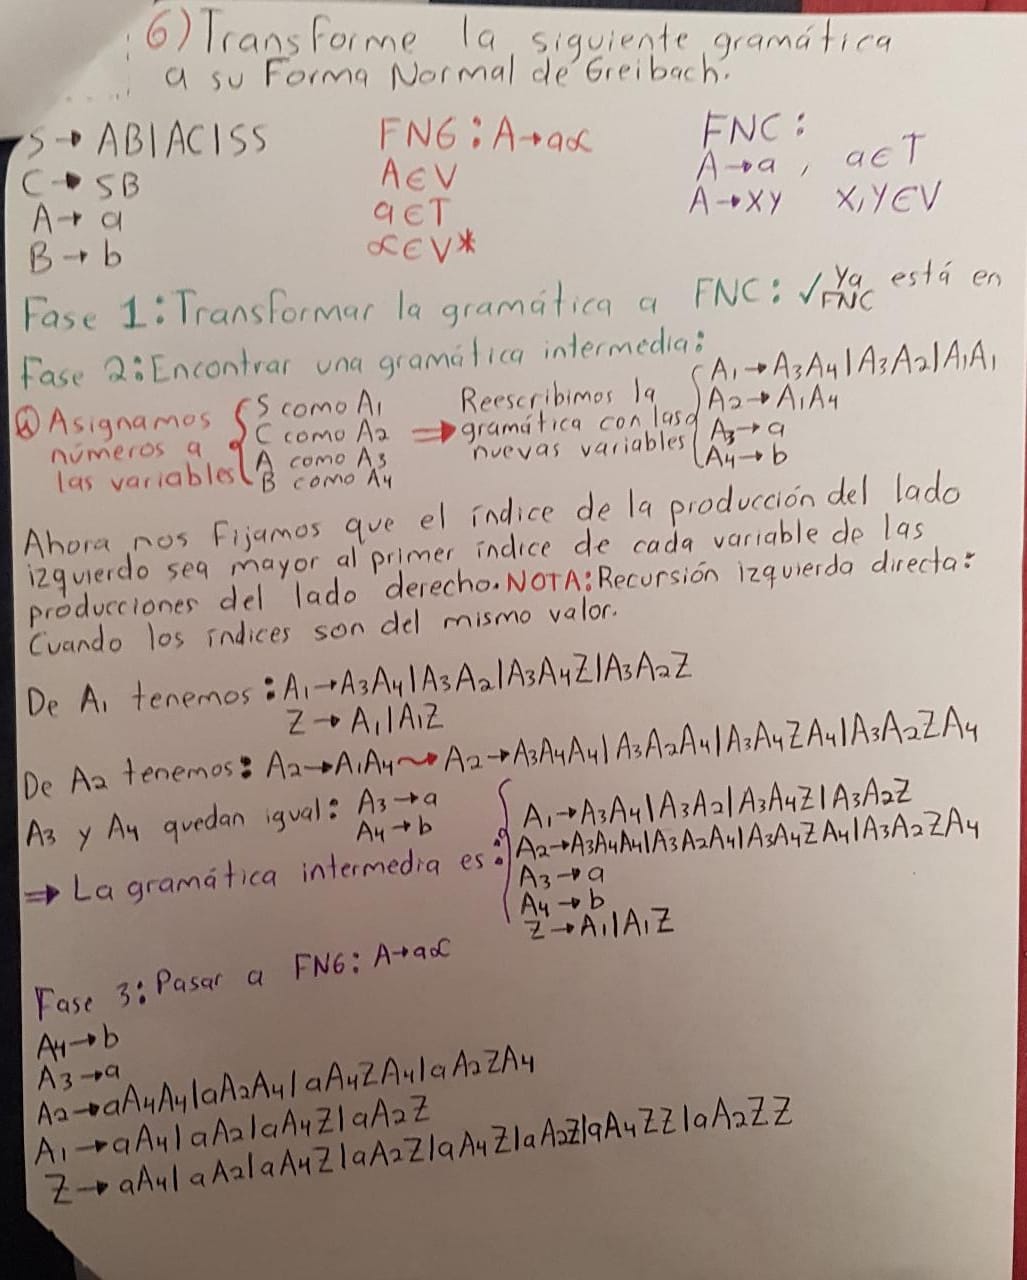 6) Transforme la siguiente gramática
a su Forma Normal de Greibach.
S → AB|AC|SS
C → SB
A → a
B → b
FNG: A→a∝
A∈V
a∈T
∝∈V*
FNC:
A→a , a∈T
A→XY X,Y∈V
Fase 1: Transformar la gramática a FNC: ✓ Ya está en
FNC
Fase 2: Encontrar una gramática intermedia:
@ Asignamos
números a
las variables
S como A₁
C como A₂
A como A₃
B como A₄
⇒
Reescribimos la
gramática con las
nuevas variables
A₁→A₃A₄|A₃A₂|A₁A₁
A₂→A₁A₄
A₃→a
A₄→b
Ahora nos fijamos que el índice de la producción del lado
izquierdo sea mayor al primer índice de cada variable de las
producciones del lado derecho. NOTA: Recursión izquierda directa:
Cuando los índices son del mismo valor.
De A₁ tenemos: A₁→A₃A₄|A₃A₂|A₃A₄Z|A₃A₂Z
Z → A₁|A₁Z
De A₂ tenemos: A₂→A₁A₄ ⇝ A₂→A₃A₄A₄|A₃A₂A₄|A₃A₄ZA₄|A₃A₂ZA₄
A₃ y A₄ quedan igual: A₃→a
A₄→b
⇒ La gramática intermedia es:
A₁→A₃A₄|A₃A₂|A₃A₄Z|A₃A₂Z
A₂→A₃A₄A₄|A₃A₂A₄|A₃A₄ZA₄|A₃A₂ZA₄
A₃→a
A₄→b
Z→A₁|A₁Z
Fase 3: Pasar a FNG: A→a∝
A₄→b
A₃→a
A₂→aA₄A₄|aA₂A₄|aA₄ZA₄|aA₂ZA₄
A₁→aA₄|aA₂|aA₄Z|aA₂Z
Z→aA₄|aA₂|aA₄Z|aA₂Z|aA₄Z|aA₂Z|aA₄ZZ|aA₂ZZ